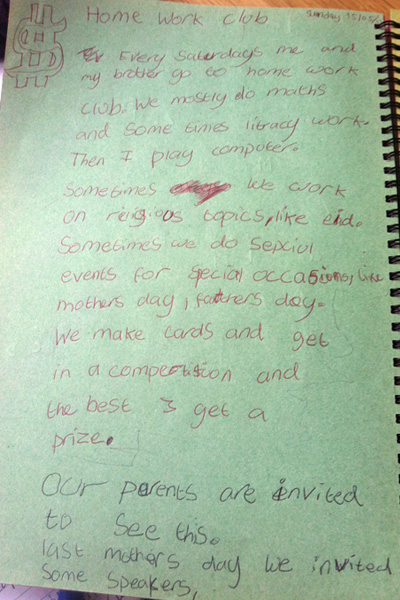 Home Work Club
Sunday 15/05/
Every Saterdays me and
my brother go to home work
club. We mostly do maths
and Some times litracy work.
Then I play computer.
Sometimes we work
on religious topics, like eid.
Sometimes we do
events for special occasions, like
mothers day, fathers day.
We make cards and get
in a and
the best 3 get a
prize.
Our parents are invited
to see this.
last mothers day we invited
Some speakers,